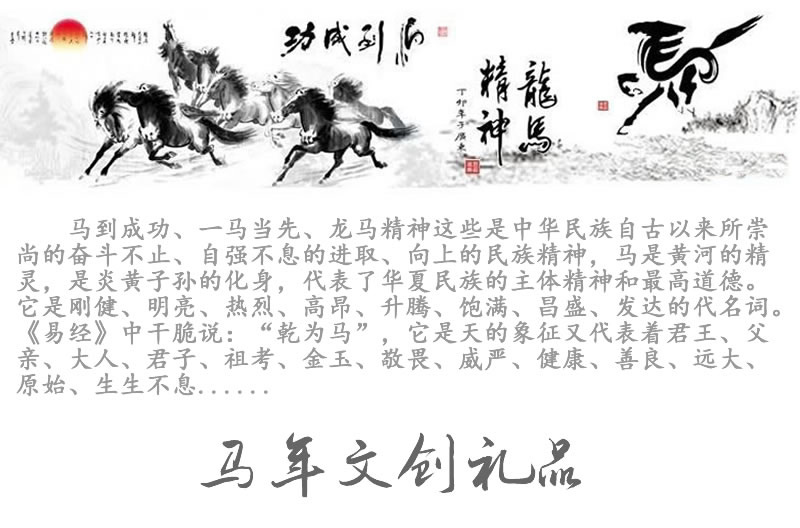 功成到马
龍馬
精神
丁卯年于广东
马到成功、一马当先、龙马精神这些是中华民族自古以来所崇
尚的奋斗不止、自强不息的进取、向上的民族精神，马是黄河的精
灵，是炎黄子孙的化身，代表了华夏民族的主体精神和最高道德。
它是刚健、明亮、热烈、高昂、升腾、饱满、昌盛、发达的代名词。
《易经》中干脆说：“乾为马”，它是天的象征又代表着君王、父
亲、大人、君子、祖考、金玉、敬畏、威严、健康、善良、远大、
原始、生生不息......
马年文创礼品